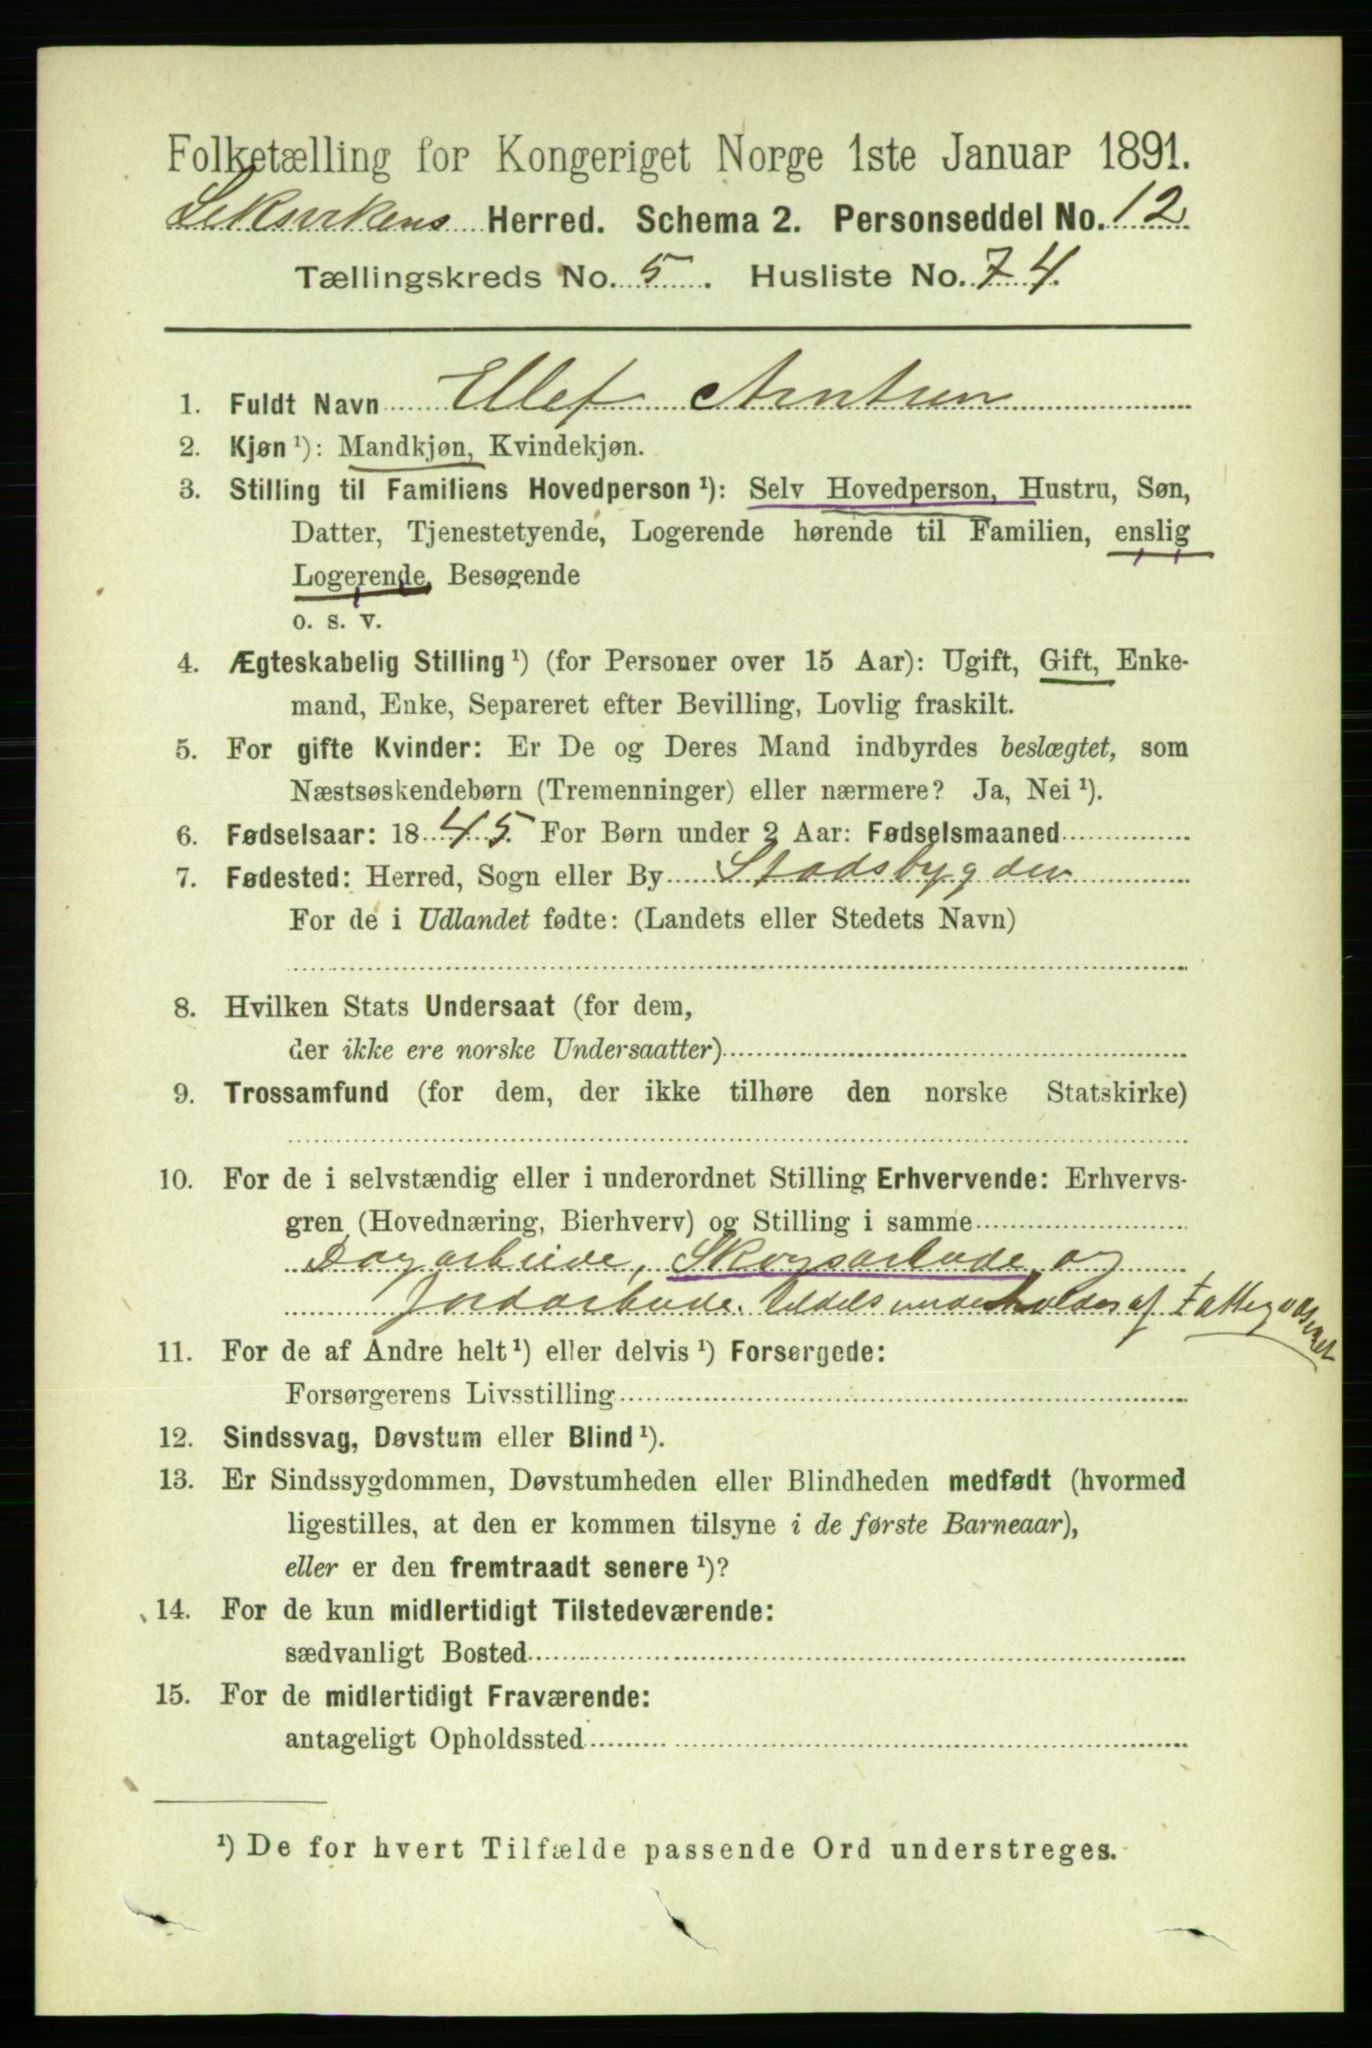 Folketælling for Kongeriget Norge 1ste Januar 1891.
Leksvikens Herred. Schema 2. Personseddel No. 12
Tællingskreds No. 5. Husliste No. 74.
1. Fuldt Navn Ellef Arntsen
2. Kjøn ¹): Mandkjøn, Kvindekjøn.
3. Stilling til Familiens Hovedperson ¹): Selv Hovedperson, Hustru, Søn,
Datter, Tjenestetyende, Logerende hørende til Familien, enslig
Logerende, Besøgende
o. s. v.
4. Ægteskabelig Stilling ¹) (for Personer over 15 Aar): Ugift, Gift, Enke-
mand, Enke, Separeret efter Bevilling, Lovlig fraskilt.
5. For gifte Kvinder: Er De og Deres Mand indbyrdes beslægtet, som
Næstsøskendebørn (Tremenninger) eller nærmere? Ja, Nei ¹).
6. Fødselsaar: 1845. For Børn under 2 Aar: Fødselsmaaned
7. Fødested: Herred, Sogn eller By Stadsbygden
For de i Udlandet fødte: (Landets eller Stedets Navn)
8. Hvilken Stats Undersaat (for dem,
der ikke ere norske Undersaatter)
9. Trossamfund (for dem, der ikke tilhøre den norske Statskirke)
10. For de i selvstændig eller i underordnet Stilling Erhvervende: Erhvervs-
gren (Hovednæring, Bierhverv) og Stilling i samme
Dagarbeide, Skogsarbeide og
Jordarbeide. tildels underholdes af Fattigvæsenet
11. For de af Andre helt ¹) eller delvis ¹) Forsørgede:
Forsørgerens Livsstilling
12. Sindssvag, Døvstum eller Blind ¹).
13. Er Sindssygdommen, Døvstumheden eller Blindheden medfødt (hvormed
ligestilles, at den er kommen tilsyne i de første Barneaar),
eller er den fremtraadt senere ¹)?
14. For de kun midlertidigt Tilstedeværende:
sædvanligt Bosted
15. For de midlertidigt Fraværende:
antageligt Opholdssted
¹) De for hvert Tilfælde passende Ord understreges.